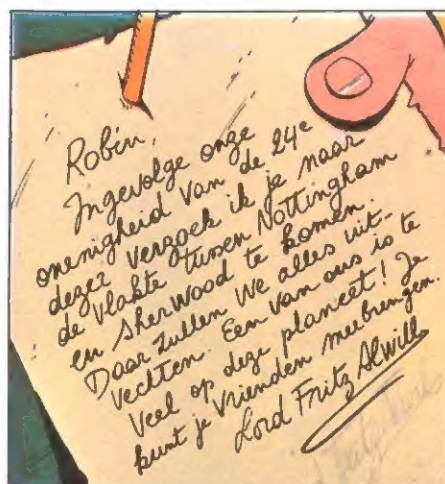 Robin,
Ingevolge onze
onenigheid van de 24e
dezer verzoek ik je naar
de vlakte tussen Nottingham
en Sherwood te komen.
Daar zullen we alles uit-
vechten. Een van ons is te
veel op deze planeet! Je
kunt je vrienden meebrengen.
Lord Fritz Alwill